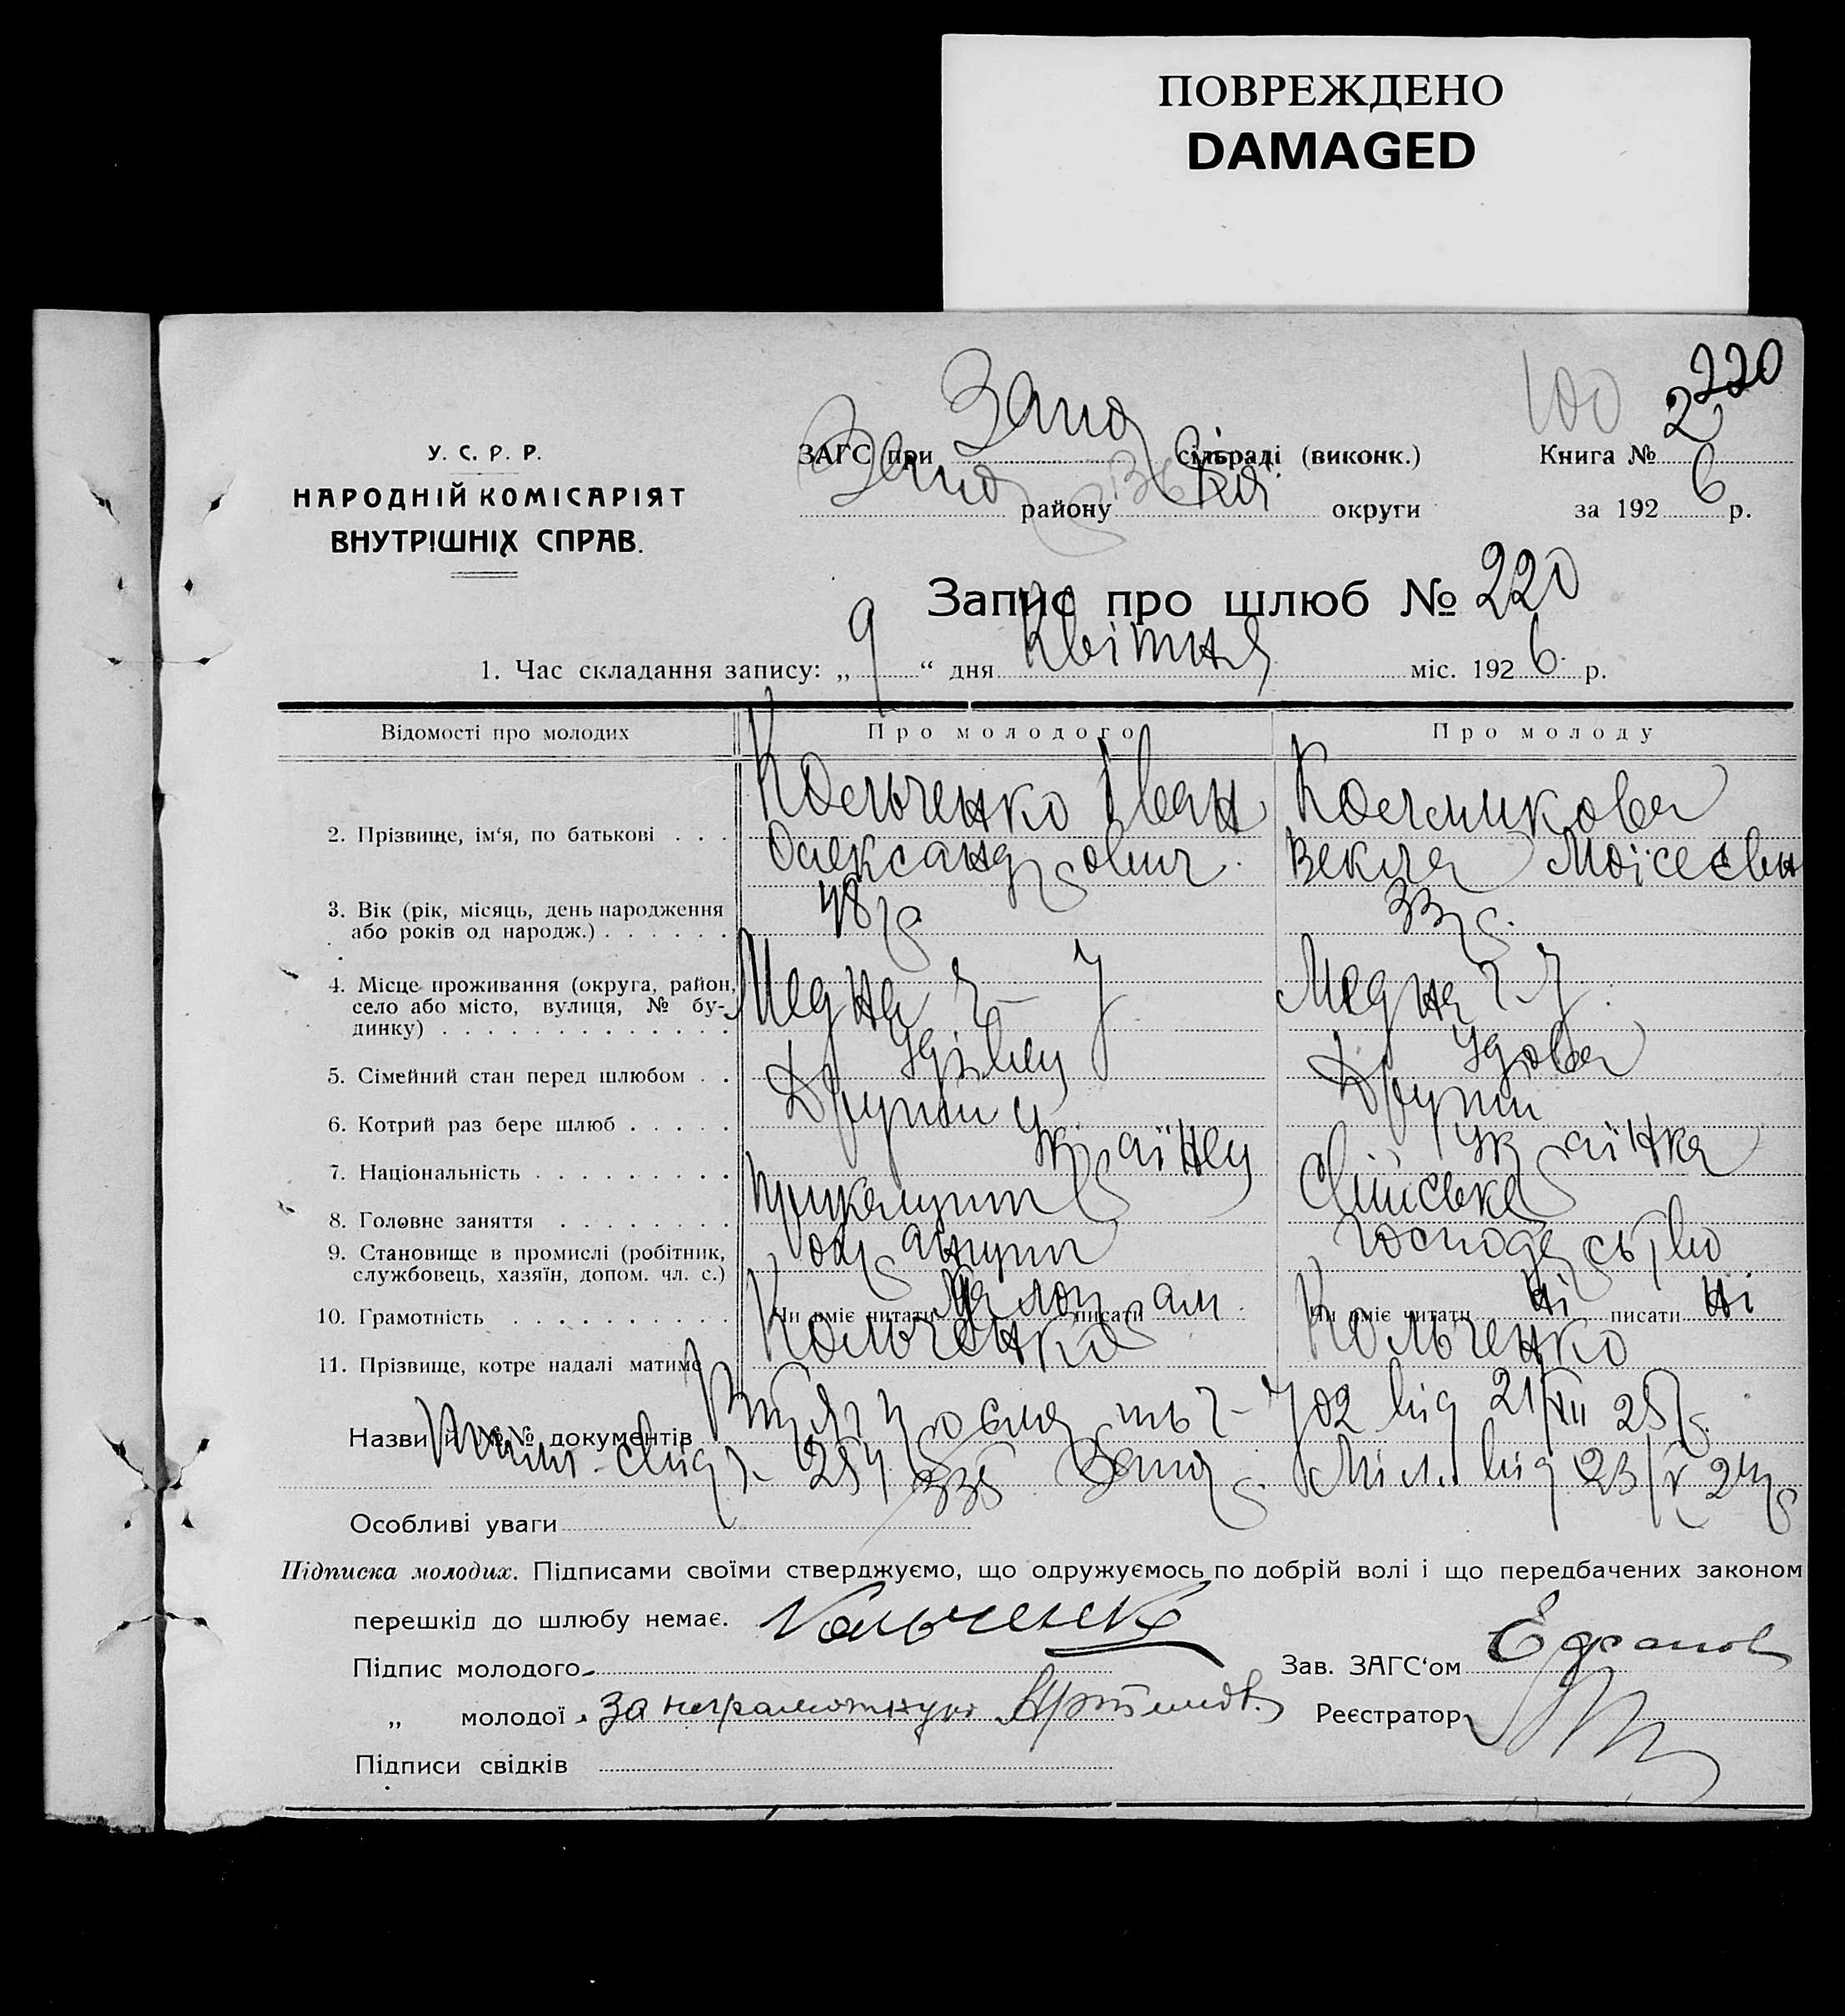 ПОВРЕЖДЕНО
DAMAGED
220
100
У. С. Р. Р.
НАРОДНІЙ КОМІСАРІЯТ
ВНУТРІШНІХ СПРАВ.
ЗАГС при Запор сільраді (виконк.) Книга № 2
Запор району округи за 192 6 р.
Запис про шлюб № 220
1. Час складання запису: „ 9 “ дня Квітня міс. 192 6 р.
Відомості про молодих Про молодого Про молоду
2. Прізвище, ім‘я, по батькові . . . Кольченко Іван Колчмикова
Олександрович Векла Моїсеєвн
3. Вік (рік, місяць, день народження 48 р. 33 р.
або років од народж.) . . . . . .
4. Місце проживання (округа, район, Медна 7 Медна 7
село або місто, вулиця, № бу-
динку) . . . . . . . . . . . . .
5. Сімейний стан перед шлюбом . . Удівець Удова
6. Котрий раз бере шлюб . . . . . Другий Другий
7. Національність . . . . . . . . . Українец Українка
8. Головне заняття . . . . . . . . Сільське
9. Становище в промислі (робітник, господарство
службовець, хазяїн, допом. чл. с.)
10. Грамотність . . . . . . . . . . Чи вміє читати писати Чи вміє читати Ні писати Ні
11. Прізвище, котре надалі матиме Кольченко Кольченко
Назви й №№ документів 702 від 21/XII 25 р.
254 335 Запор. Міл. від 23/V 24 р
Особливі уваги
Підписка молодих. Підписами своїми стверджуємо, що одружуємось по добрій волі і що передбачених законом
перешкід до шлюбу немає. Кольченко
Підпис молодого Зав. ЗАГС‘ом
„ молодої За неграмотную Реєстратор
Підписи свідків